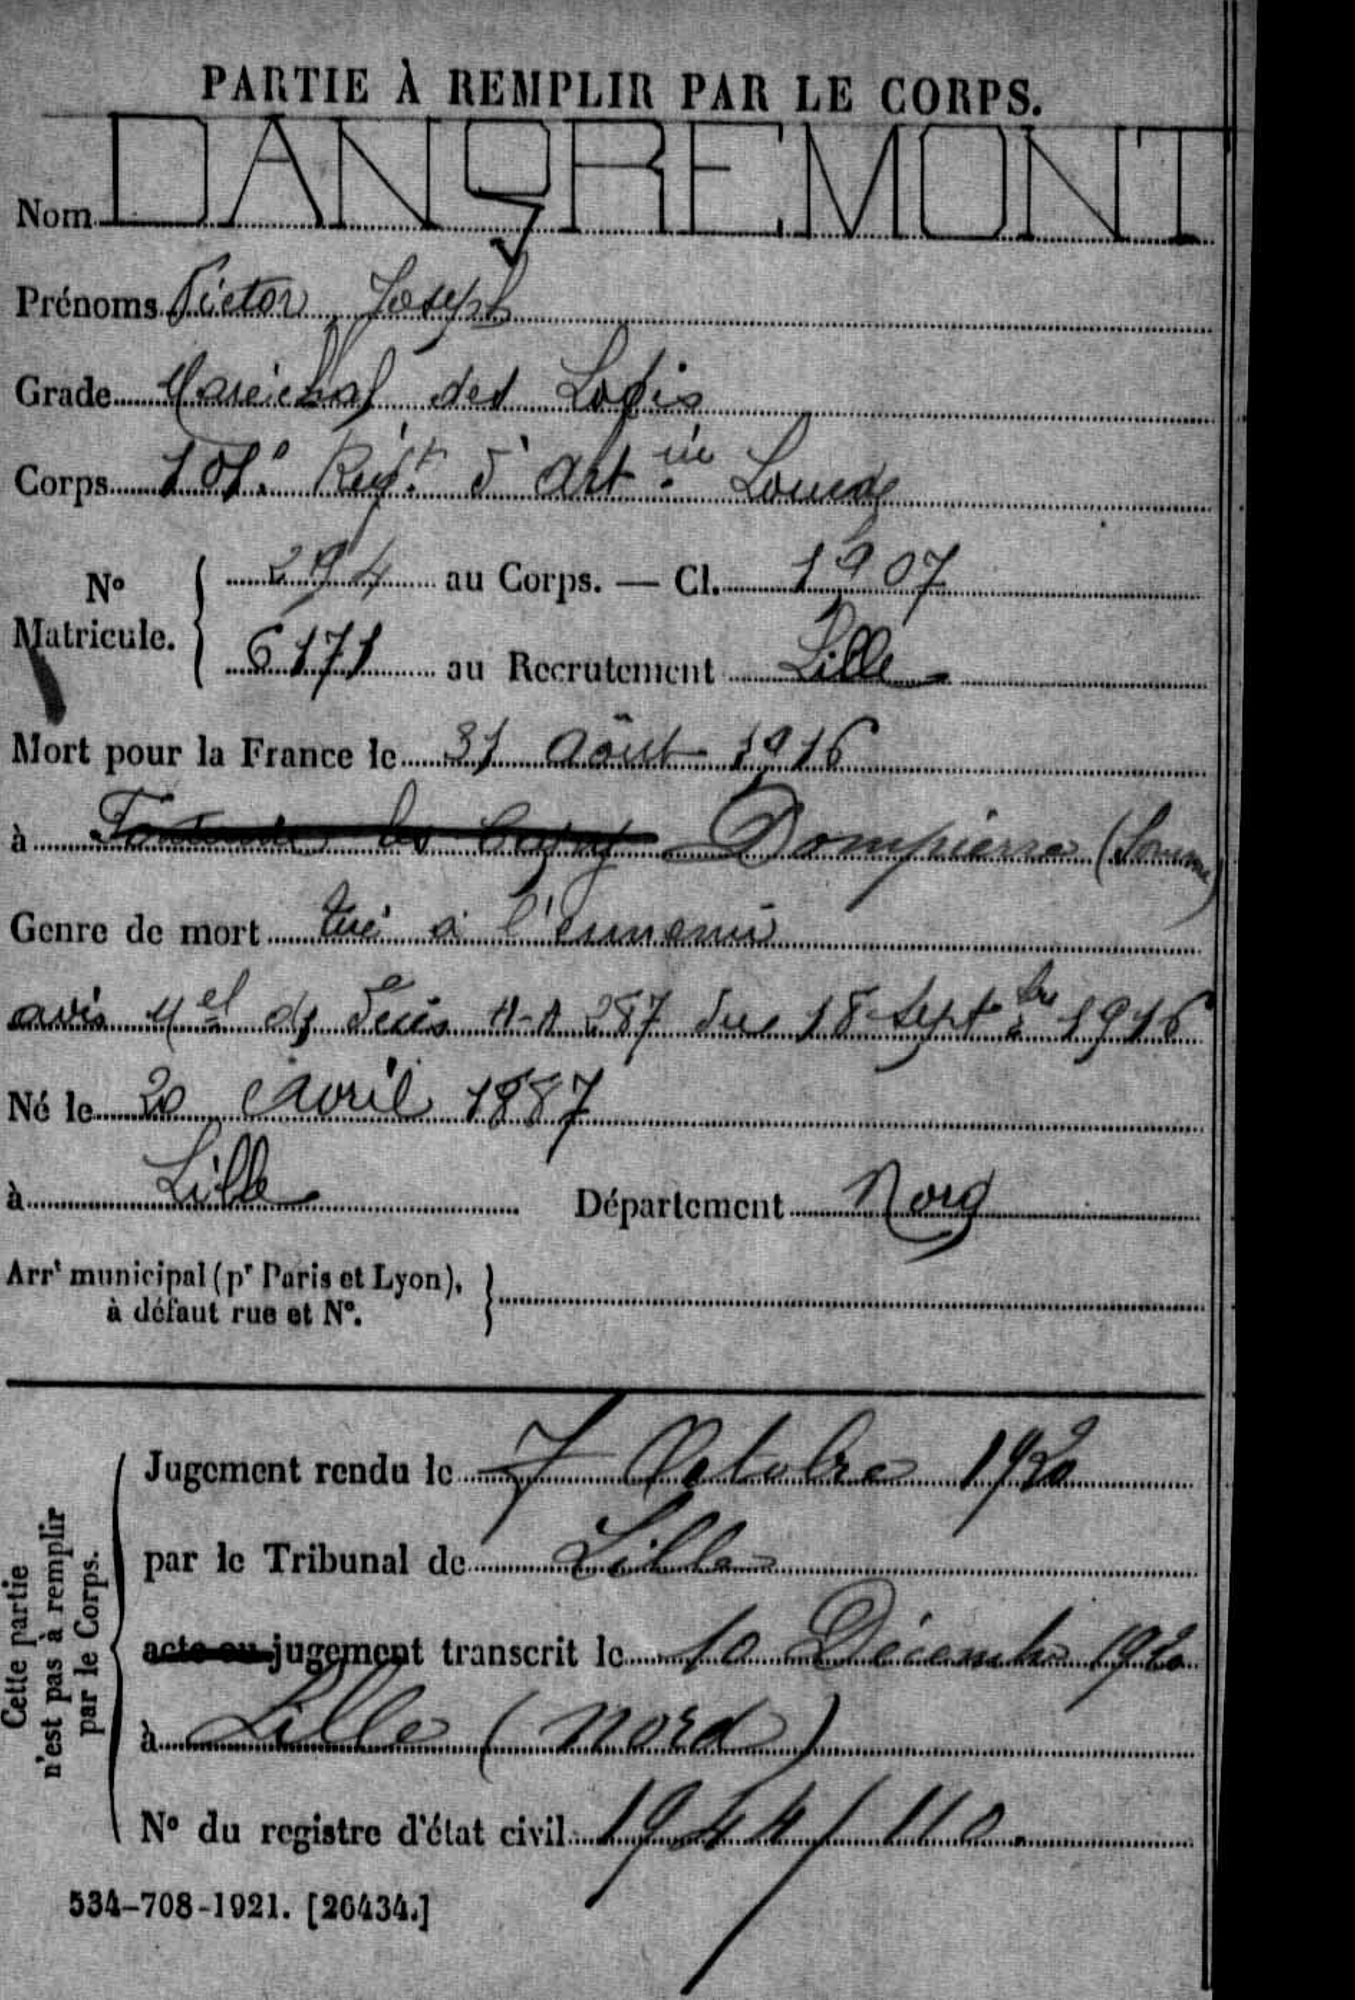 PARTIE À REMPLIR PAR LE CORPS.
Nom DANGREMONT
Prénoms Victor Joseph
Grade Maréchal des Logis
Corps 101e Régt d'Artie Lourde
No Matricule. { 294 au Corps. — Cl. 1907
6171 au Recrutement Lille
Mort pour la France le 31 Août 1916
à Dompierre (Somme)
Genre de mort tué à l'ennemi
avis Mel de décès 287 du 18 Septbre 1916
Né le 20 Avril 1887
à Lille Département Nord
Arrt municipal (pr Paris et Lyon), à défaut rue et No. }
Cette partie n'est pas à remplir par le Corps.
Jugement rendu le 7 Octobre 1920
par le Tribunal de Lille
acte ou jugement transcrit le 10 Décembre 1920
à Lille (Nord)
No du registre d'état civil 1944/110.
534-708-1921. [26434.]